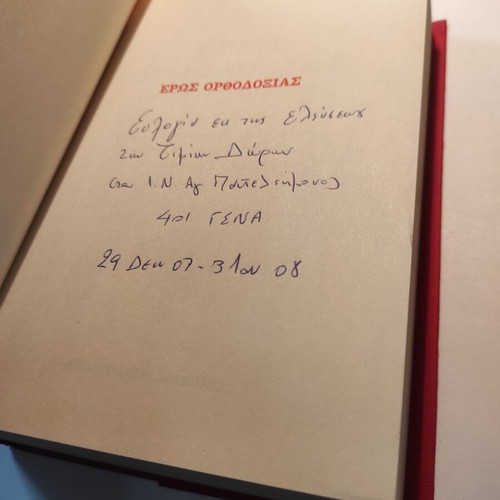 ΕΡΩΣ ΟΡΘΟΔΟΞΙΑΣ
Ευλογία εκ της ελεύσεως
των Τιμίων Δώρων
στο Ι.Ν. Αγ Παντελεήμονος
401 ΓΕΝΑ
29 Δεκ 07 - 3 Ιαν 08